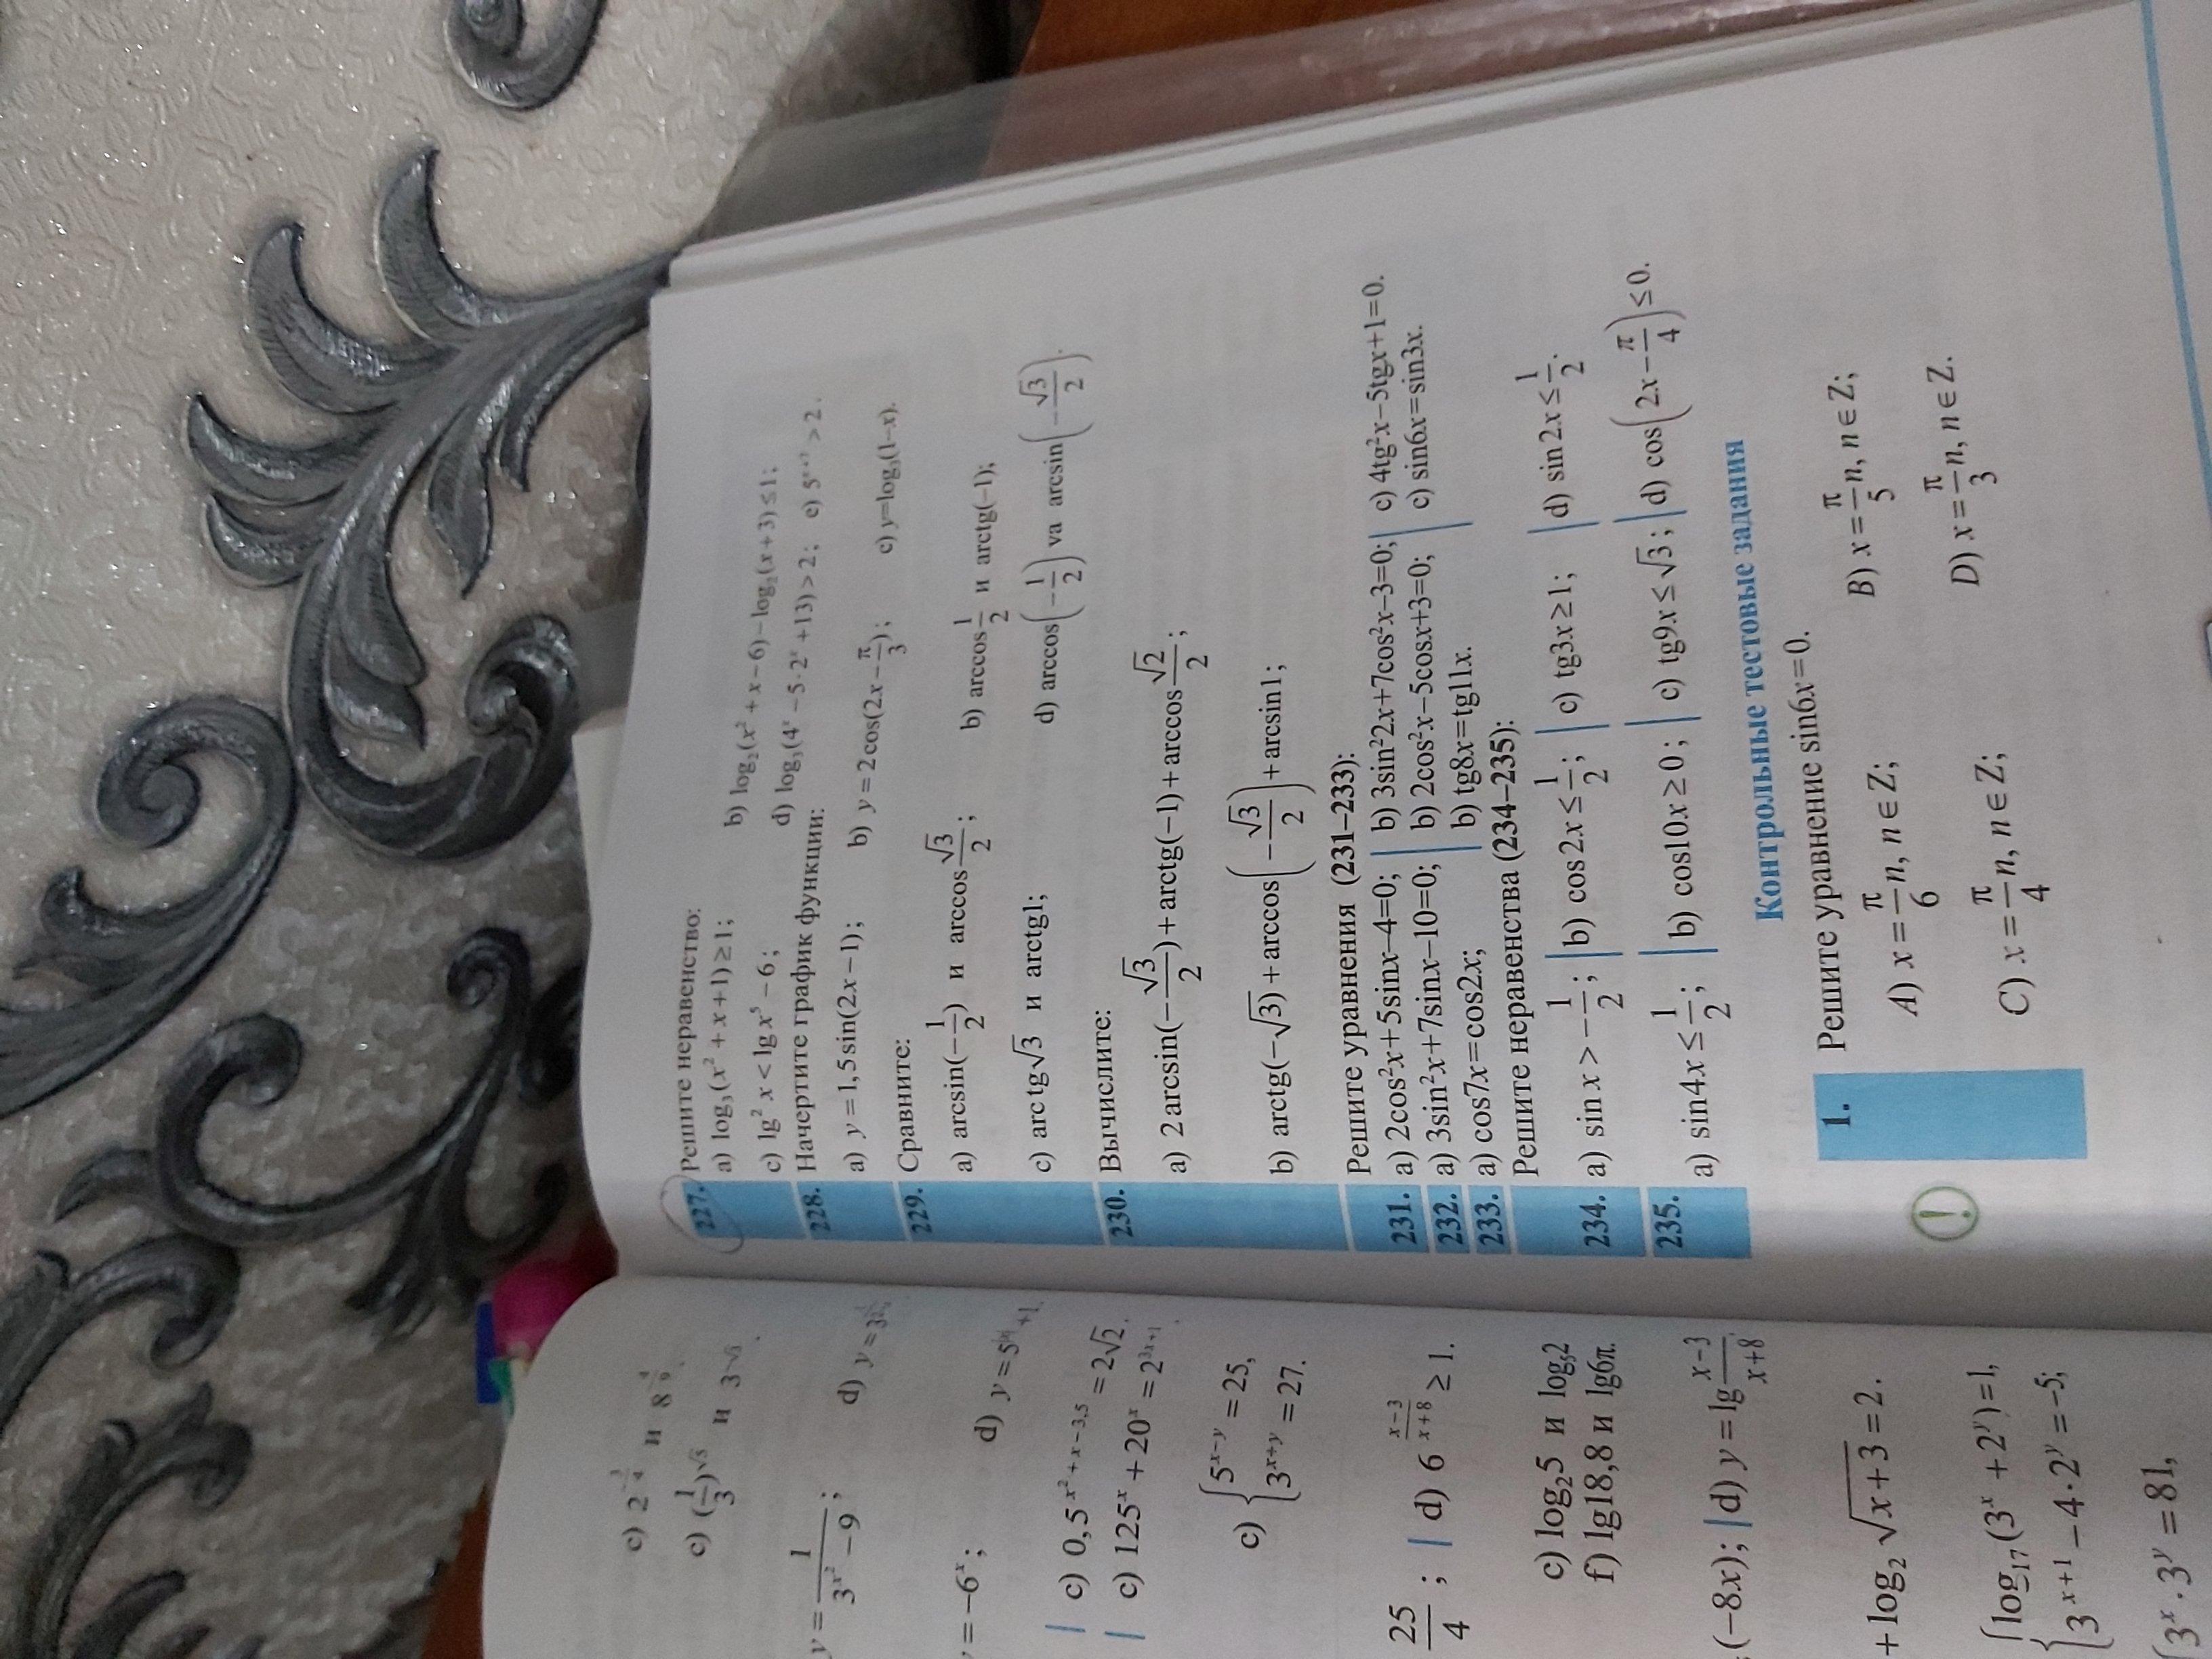 c) 2^{-\frac{3}{4}} и 8
c) (\frac{1}{3})^{\sqrt{5}} и
y = \frac{1}{3^{x^2} - 9};
d) y =
y = -6^x;
d) y = 5^{|x|} + 1.
c) 0,5^{x^2+x-3,5} = 2\sqrt{2}.
c) 125^x + 20^x = 2^{3x+1}.
c) \begin{cases} 5^{x-y} = 25, \\ 3^{x+y} = 27. \end{cases}
\frac{25}{4}; | d) 6^{\frac{x-3}{x+8}} ≥ 1.
c) log_2 5 и log_5 2
f) lg18,8 и lg6π.
(-8x); | d) y = lg\frac{x-3}{x+8}.
+ log_2 \sqrt{x+3} = 2.
\begin{cases} log_{17}(3^x + 2^y) = 1, \\ 3^{x+1} - 4·2^y = -5; \end{cases}
3^x · 3^y = 81,
227. Решите неравенство:
a) log_3(x^2 + x + 1) ≥ 1; b) log_2(x^2 + x - 6) - log_2(x + 3) ≤ 1;
c) lg^2 x < lg x^5 - 6; d) log_3(4^x - 5·2^x + 13) > 2; e) 5 > 2.
228. Начертите график функции:
a) y = 1,5 sin(2x - 1); b) y = 2cos(2x - \frac{π}{3}); c) y=log_3(1-x).
229. Сравните:
a) arcsin(-\frac{1}{2}) и arccos\frac{\sqrt{3}}{2}; b) arccos\frac{1}{2} и arctg(-1);
c) arctg\sqrt{3} и arctg1; d) arccos(-\frac{1}{2}) va arcsin(-\frac{\sqrt{3}}{2}).
230. Вычислите:
a) 2 arcsin(-\frac{\sqrt{3}}{2}) + arctg(-1) + arccos\frac{\sqrt{2}}{2};
b) arctg(-\sqrt{3}) + arccos(-\frac{\sqrt{3}}{2}) + arcsin1;
Решите уравнения (231–233):
231. a) 2cos^2x+5sinx-4=0; | b) 3sin^22x+7cos^2x-3=0; | c) 4tg^2x-5tgx+1=0.
232. a) 3sin^2x+7sinx-10=0; | b) 2cos^2x-5cosx+3=0; | c) sin6x=sin3x.
233. a) cos7x=cos2x; | b) tg8x=tg11x.
Решите неравенства (234–235):
234. a) sin x > -\frac{1}{2}; | b) cos2x ≤ \frac{1}{2}; | c) tg3x ≥ 1; | d) sin2x ≤ \frac{1}{2}.
235. a) sin4x ≤ \frac{1}{2}; | b) cos10x ≥ 0; | c) tg9x ≤ \sqrt{3}; | d) cos(2x - \frac{π}{4}) ≤ 0.
Контрольные тестовые задания
1. Решите уравнение sin6x=0.
A) x = \frac{π}{6}n, n∈Z; B) x = \frac{π}{5}n, n∈Z;
C) x = \frac{π}{4}n, n∈Z; D) x = \frac{π}{3}n, n∈Z.